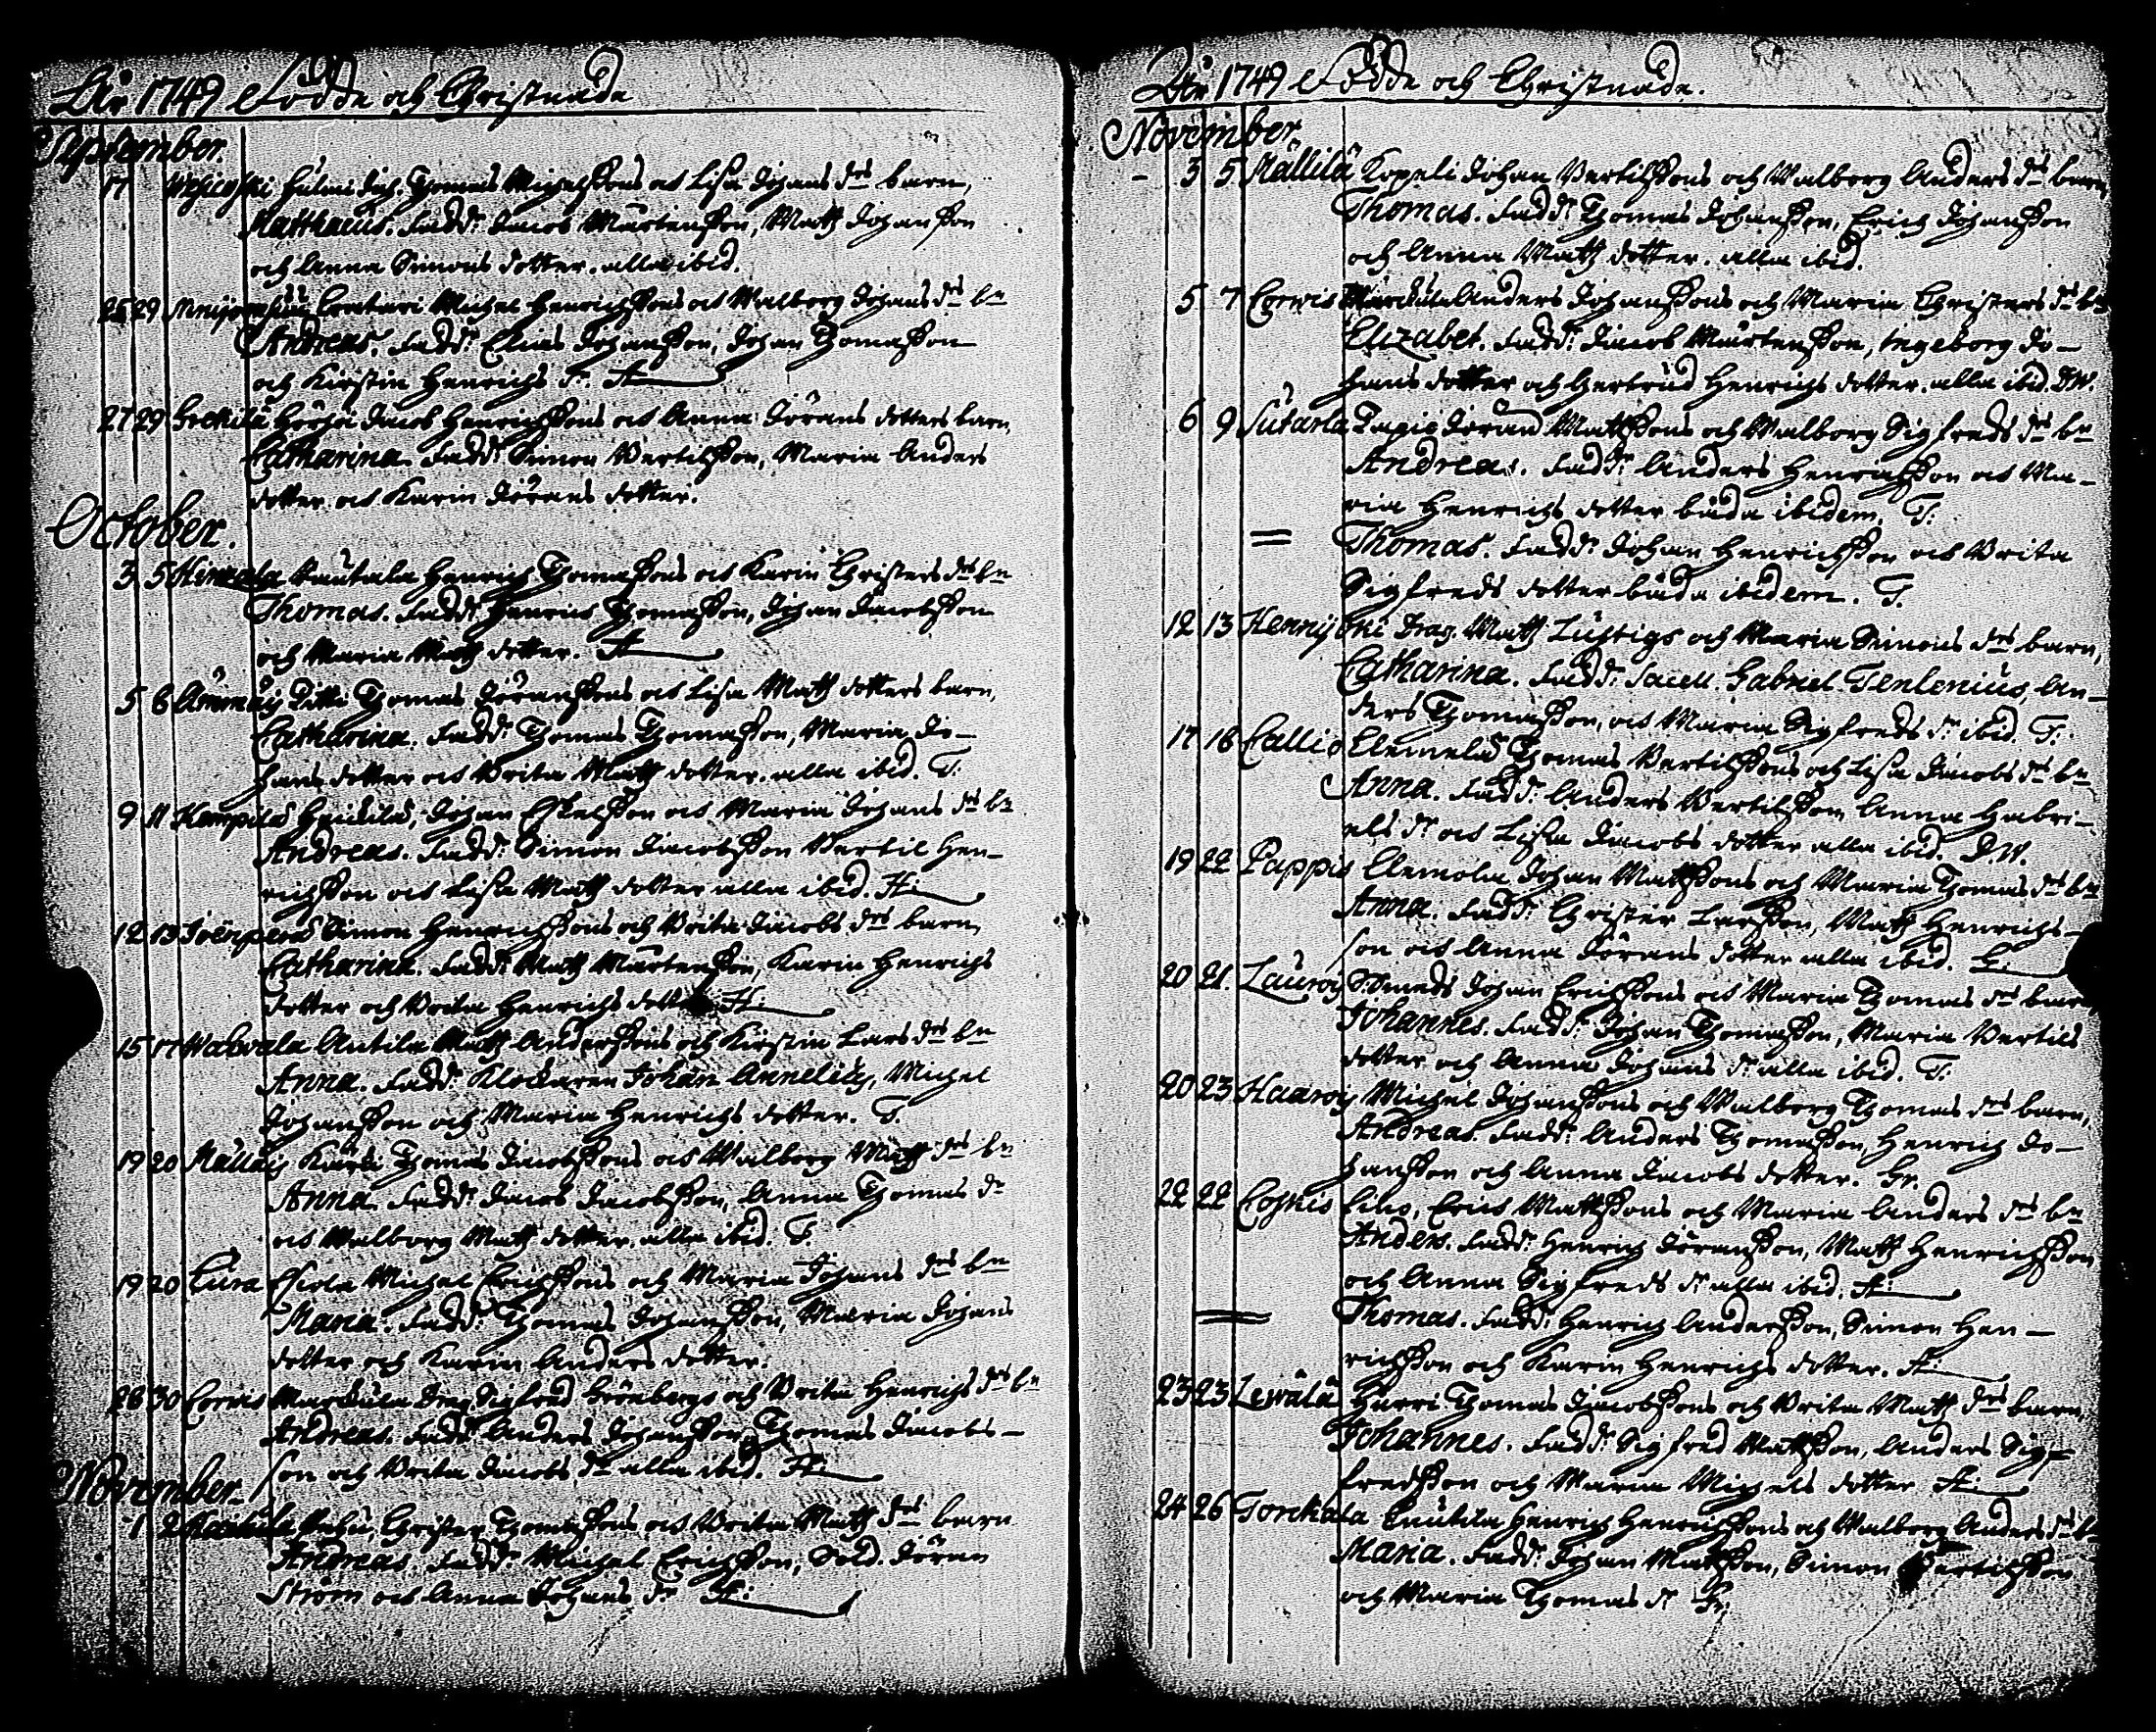 Åhr 1749 Födde och Christnade
September.
17 Hulmi Inh. Thomas Michelssons och Lisa Johans drs barn,
Matthaeus. Fadd: Jacob Mårtensson, Matth Johansson
och Anna Simons dotter. alla ibid.
25 29 Contari Michel Henrichssons och Walborg Johans drs bn
Andreas. Fadd: Elias Johansson, Johan Thomasson
och Kirstin Henrichs dr. H
27 29 Jacob Henrichssons och Anna Jörans dotters barn
Catharina. Fadd: Simon Bertilsson, Maria Anders
dotter och Karin Jörans dotter.
October.
3 5 Rautala Henrich Thomassons och Karin Christers drs bn
Thomas. Fadd: Henrich Thomasson, Johan Jacobsson
och Maria Matth dotter. H
5 6 Titti Thomas Jöranssons och Lisa Matth dotters barn,
Catharina. Fadd: Thomas Thomasson, Maria Jo-
hans dotter och Brita Matth dotter. alla ibid. T.
9 11 Kempilä Heickilä, Johan Eskelsson och Maria Johans drs bn
Andreas. Fadd: Simon Jacobsson Bertil Hen-
richsson och Lisa Matth dotter alla ibid. H:
12 13 Simon Henrichssons och Brita Jacobs drs barn,
Catharina. Fadd: Matth Mårtensson, Karin Henrichs
dotter och Brita Henrichs dotter H:
15 17 Antila Matth Anderssons och Kirstin Lars drs bn
Anna. Fadd: Klockaren Johan Annelius, Michel
Johansson och Maria Henrichs dotter. T.
19 20 Kärki Thomas Jacobssons och Walborg Matth drs bn
Anna. Fadd: Jacob Jacobsson, Anna Thomas dr
och Walborg Matth dotter. alla ibid. T.
19 20 Cura Eskola Michel Erichssons och Maria Johans drs bn
Maria. Fadd: Thomas Johansson, Maria Johans
dotter och Karin Anders dotter.
28 30 Corvis Marckula Drag Sigfred Grönbergs och Brita Henrichs drs bn
Andreas. Fadd: Anders Johansson, Thomas Jacobs-
son och Brita Jacobs dr alla ibid. H:
November.
1 2 Christer Thomassons och Brita Matth drs barn
Andreas. Fadd: Michel Erichsson, Sold. Jöran
Ström och Anna Johans dr H:
Åhr 1749 Födde och Christnade.
November.
3 5 Mallila Kopeli Johan Bertilssons och Walborg Anders drs barn,
Thomas. Fadd: Thomas Johansson, Erich Johansson
och Anna Matth dotter. alla ibid.
5 7 Corvis Marckula Anders Johanssons och Maria Christers drs bn
Elizabet. Fadd: Jacob Mårtensson, Ingeborg Jo-
hans dotter och Gertrud Henrichs dotter. alla ibid. J.W.
6 9 Sutarla Papio Jöran Mattssons och Walborg Sigfreds drs bn
Andreas. Fadd: Anders Henrichsson och Ma-
ria Henrichs dotter båda ibidem. T.
= Thomas. Fadd: Johan Henrichsson och Brita
Sigfreds dotter båda ibidem. T.
12 13 Drag. Matth Lustigs och Maria Simons drs barn,
Catharina. Fadd: Gabriel Tenlenius, An-
ders Thomasson, och Maria Sigfreds dr ibid. T.
17 18 Callio Clemelä Thomas Bertilssons och Lisa Jacobs drs bn
Anna. Fadd: Anders Bertilsson Anna Gabri-
els dr och Lisa Jacobs dotter alla ibid. J.W.
19 22 Pappis Clemola Johan Mattssons och Maria Thomas drs bn
Anna. Fadd: Christer Larsson, Matth Henrichs-
son och Anna Jörans dotter alla ibid.
20 21. Lauroij Smeds Johan Erichssons och Maria Thomas drs barn,
Johannes. Fadd: Johan Thomasson, Maria Bertils
dotter och Anna Johans dr alla ibid. T.
20 23 Haaroij Michel Johanssons och Walborg Thomas drs barn,
Andreas. Fadd: Anders Thomasson, Henrich Jo-
hansson och Anna Jacobs dotter. Gr.
22 22 Coskis Erich Mattssons och Maria Anders drs bn
Anders. Fadd: Henrich Jöransson, Matth Henrichsson
och Anna Sigfreds dr alla ibid. H:
= Thomas. Fadd: Henrich Andersson, Simon Hen-
richsson och Karin Henrichs dotter. H:
23 23 Lewälä Harri Thomas Jacobssons och Brita Matth drs barn,
Johannes. Fadd: Sigfred Mattsson, Anders Sig-
fredsson och Maria Michels dotter H:
24 26 Torckala Knutila Henrich Henrichssons och Walborg Anders drs bn
Maria. Fadd: Johan Mattsson, Simon Bertilsson
och Maria Thomas dr Gr.